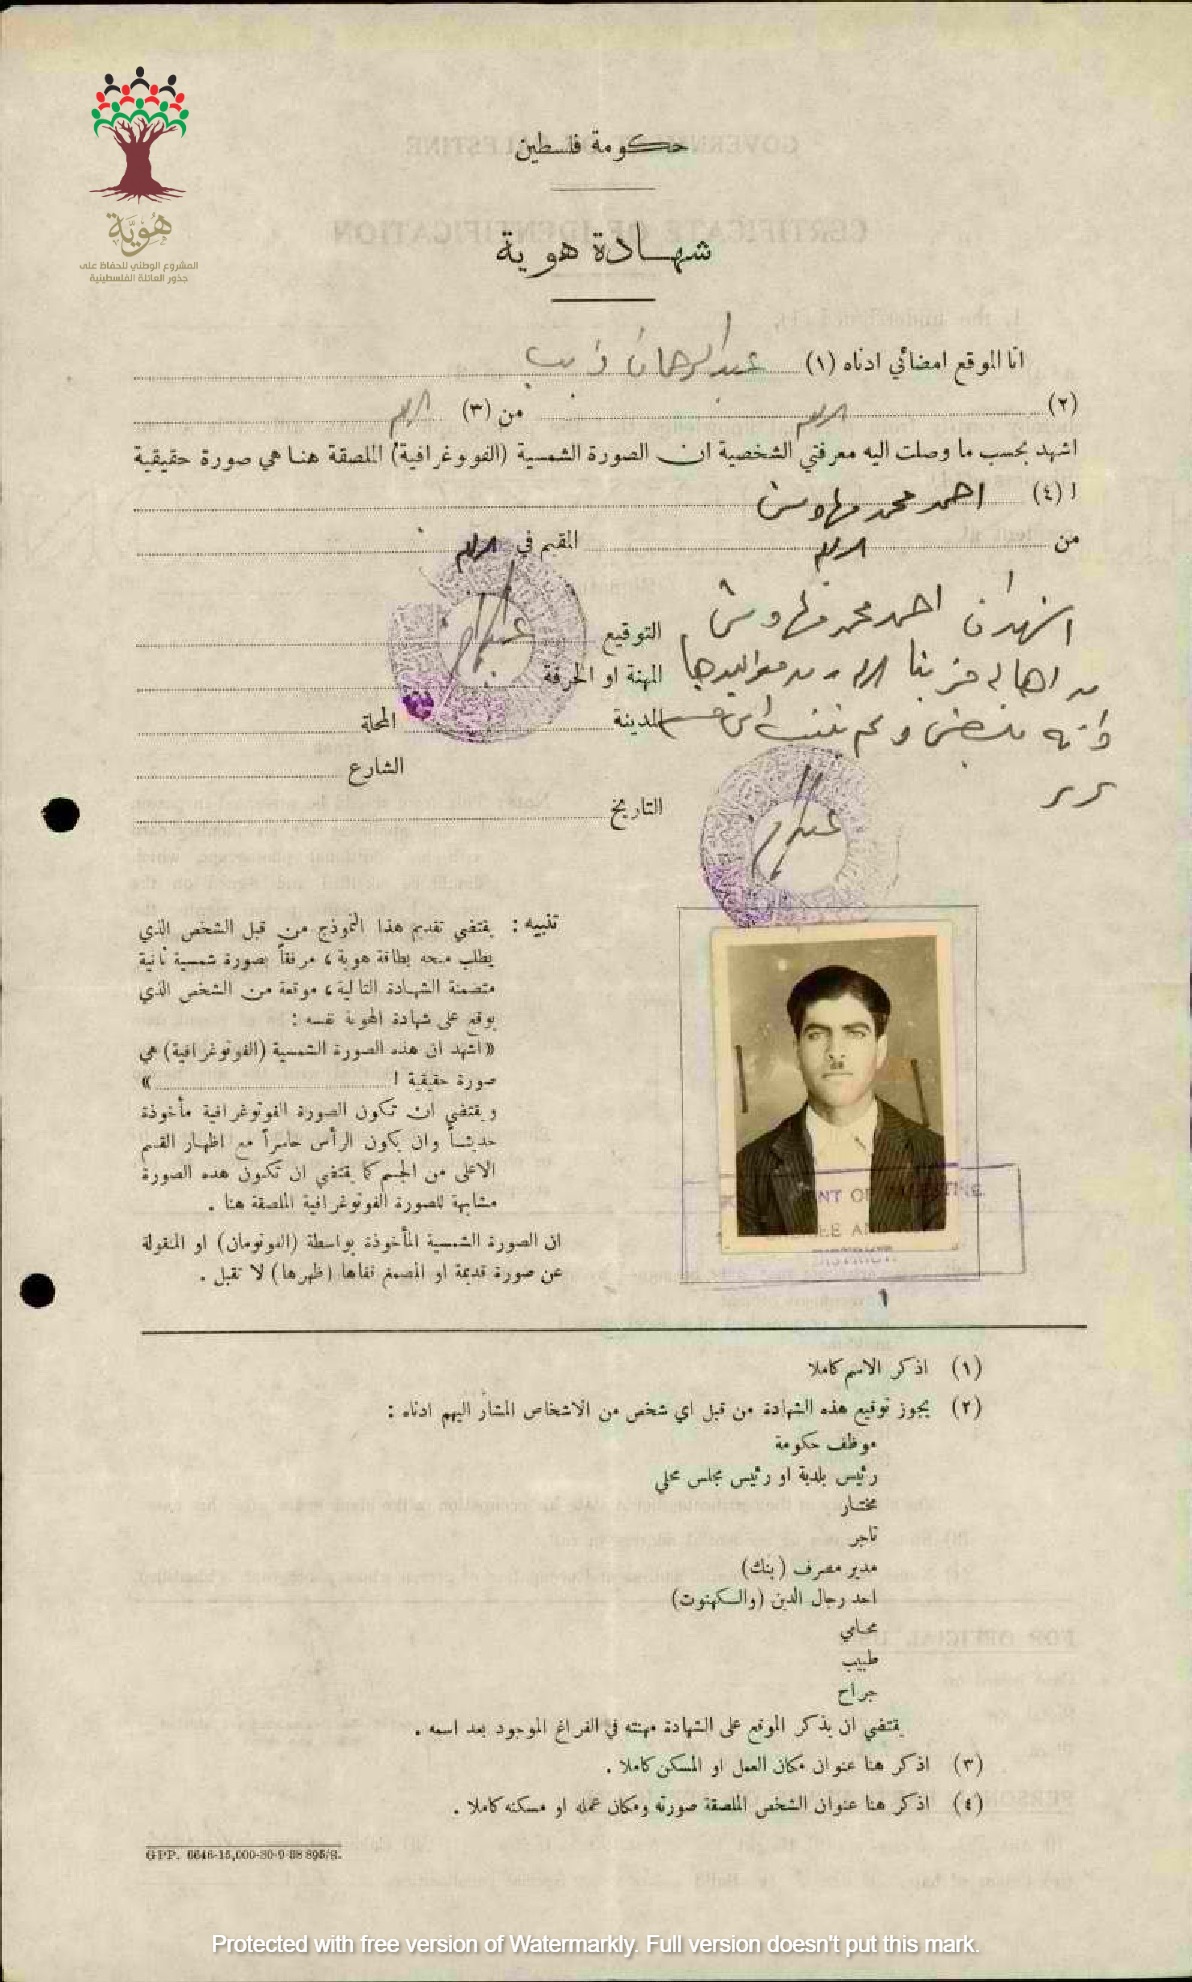 هُوِيَّة
المشروع الوطني للحفاظ على
جذور العائلة الفلسطينية
حكومة فلسطين
شهادة هوية
انا الموقع امضائي ادناه (١) عبد الرحمان
(٢) من (٣)
اشهد بحسب ما وصلت اليه معرفتي الشخصية ان الصورة الشمسية (الفوتوغرافية) الملصقة هنا هي صورة حقيقية
ا (٤) احمد محمد
من المقيم في
اشهد ان احمد محمد
من اهالي
التوقيع
المهنة او الحرفة
المدينة المحلة
الشارع
التاريخ
تنبيه : يقتضي تقديم هذا النموذج من قبل الشخص الذي
يطلب منحه بطاقة هوية ، مرفقاً بصورة شمسية ثانية
متضمنة الشهادة التالية ، موقعة من الشخص الذي
يوقع على شهادة الهوية نفسه :
«اشهد ان هذه الصورة الشمسية (الفوتوغرافية) هي
صورة حقيقية ا »
ويقتضي ان تكون الصورة الفوتوغرافية مأخوذة
حديثاً وان يكون الرأس حاسراً مع اظهار القسم
الاعلى من الجسم كما يقتضي ان تكون هذه الصورة
مشابهة للصورة الفوتوغرافية الملصقة هنا .
ان الصورة الشمسية المأخوذة بواسطة (الفوتومان) او المنقولة
عن صورة قديمة او المصمغ قفاها (ظهرها) لا تقبل .
NT OF PALESTINE
EE AN
DISTRICT
١
(١) اذكر الاسم كاملا
(٢) يجوز توقيع هذه الشهادة من قبل اي شخص من الاشخاص المشار اليهم ادناه :
موظف حكومة
رئيس بلدية او رئيس مجلس محلي
مختار
تاجر
مدير مصرف (بنك)
احد رجال الدين (والكهنوت)
محامي
طبيب
جراح
يقتضي ان يذكر الموقع على الشهادة مهنته في الفراغ الموجود بعد اسمه .
(٣) اذكر هنا عنوان مكان العمل او المسكن كاملا .
(٤) اذكر هنا عنوان الشخص الملصقة صورته ومكان عمله او مسكنه كاملا .
GPP. 6646-15,000-30-9-38 895/S.
Protected with free version of Watermarkly. Full version doesn't put this mark.